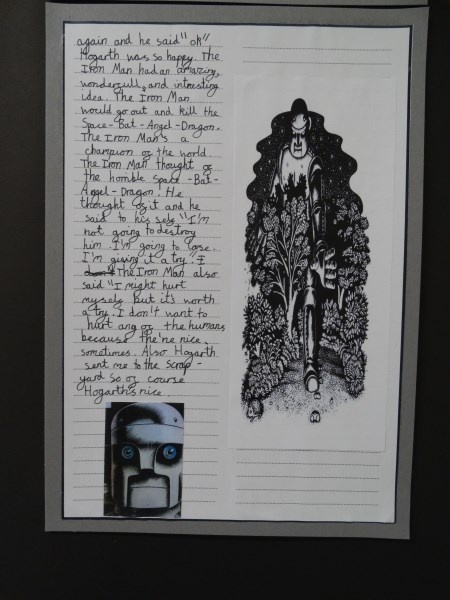 again and he said "ok"
Hogarth was so happy. The
Iron Man had an amazing,
wonderfull, and intresting
idea. The Iron Man
would go out and kill the
Space-Bat-Angel-Dragon.
The Iron Man's a
champion of the world.
The Iron Man thought of
the horrible Space-Bat-
Angel-Dragon! He
thought of it and he
said to his self "I'm
not going to destroy
him I'm going to lose.
I'm giving it a try". I
The Iron Man also
said "I might hurt
myself but it's worth
a try. I don't want to
hurt any of the humans
because the're nice
sometimes. Also Hogarth
sent me to the scrap-
yard so of course
Hogarth's nice.